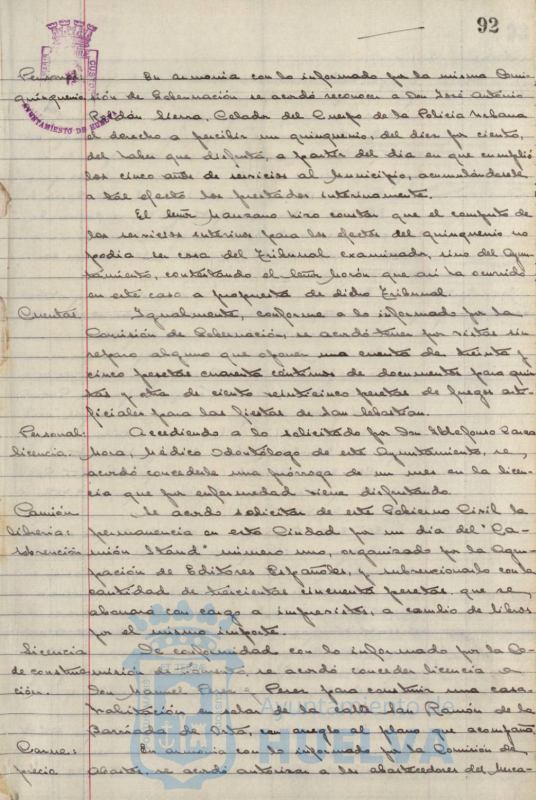 92
Personal: En armonia con lo informado por la misma Comi-
quinquenio sión de Gobernación se acordó reconocer a Don José Antonio
Roldón Sierra, Celador del Cuerpo de la Policia Urbana
el derecho a percibir un quinquenio, del diez por ciento,
del haber que disfruta, a partir del dia en que cumplió
los cinco años de servicios al Municipio, acumulándosele
a tal efecto los prestados interinamente.
El Señor Manzano hizo constar que el computo de
los servicios interinos para los efectos del quinquenio no
podia ser cosa del Tribunal examinador, sino del Ayun-
tamiento, contestando el Señor Morón que asi ha ocurrido
en este caso a propuesta de dicho Tribunal.
Cuentas. Igualmente, conforme a lo informado por la
Comisión de Gobernación, se acordó tener por vistas sin
reparo alguno que oponer una cuenta de treinta y
cinco pesetas cuarenta céntimos de documentos para quin-
tas y otra de ciento veinticinco pesetas de fuegos arti-
ficiales para las fiestas de San Sebastián.
Personal: Accediendo a lo solicitado por Don Ildefonso
licencia. Mora, Médico Odontólogo de este Ayuntamiento, se
acordó concederle una prórroga de un mes en la licen-
cia que por enfermedad viene disfrutando.
Camión Se acordó solicitar de este Gobierno Civil la
libreria: permanencia en esta Ciudad por un dia del "Ca-
subvención mión Stand" número uno, organizado por la Agru-
pación de Editores Españoles, y subvencionarlo con la
cantidad de trescientas cincuenta pesetas, que se
abonará con cargo a imprevistos, a cambio de libros
por el mismo importe.
licencia De conformidad con lo informado por la Co-
de construc- misión de se acordó conceder licencia a
ción. Don Manuel Perez para construir una casa-
habitación en solar de la calle San Ramón de la
Barriada de Orta, con arreglo al plano que acompaña
Carne: En armonia con lo informado por la Comisión de
precio Abastos, se acordó autorizar a los abastecedores del Merca-
AYUNTAMIENTO DE HUELVA
Ayuntamiento de
HUELVA